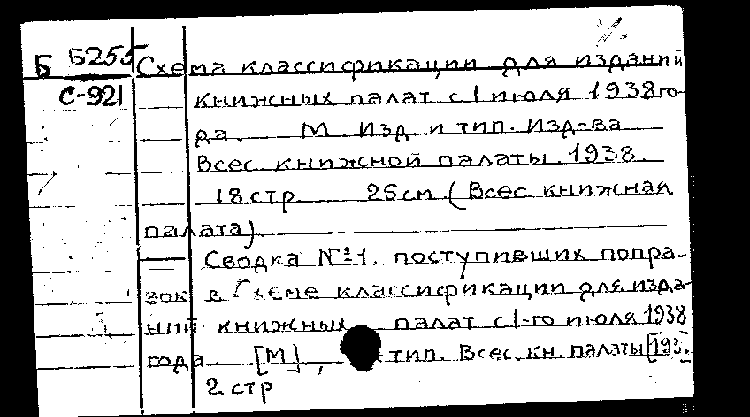 Б Б255 Схема классификации для изданий
С-921 книжных палат с 1 июля 1938 го-
да. М. Изд. и тип. Изд-ва
Всес. книжной палаты. 1938.
18 стр 26 см. (Всес. книжная
палата).
Сводка №1. поступивших попра-
вок в Схеме классификации для изда-
ний книжных палат с 1-го июля 1938
года. [М], тип. Всес. кн. палаты [193.
2 стр